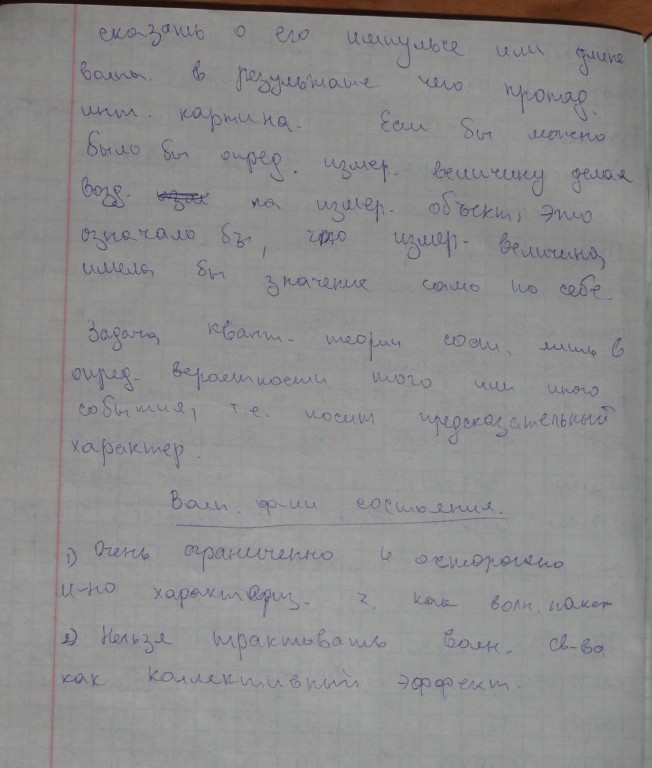 сказать о его импульсе или длине
волны. в результате чего пропад.
инт. картина. Если бы можно
было бы опред. измер. величину делая
возд. на измер. объект, это
означало бы, что измер. величина
имела бы значение само по себе.
Задача квант. теории сост. лишь в
опред. вероятности того или иного
события, т.е. носит предсказательный
характер.
Волн. ф-ии состояния.
1) Очень ограниченно и осторожно
м-но характериз. ч. как волн. пакет
2) Нельзя трактовать волн. св-ва
как коллективный эффект.